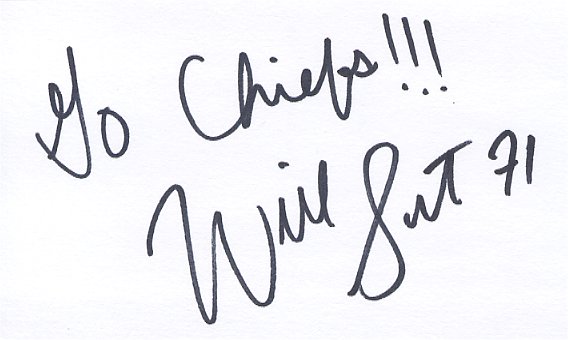 Go Chiefs!!!
Will Sut 71